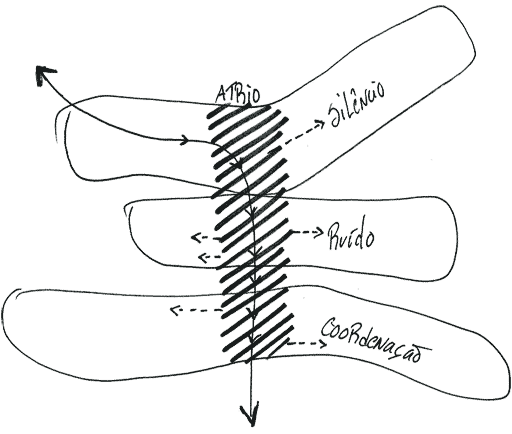 ATRIO
Silêncio
Ruído
COORdenAÇÃO